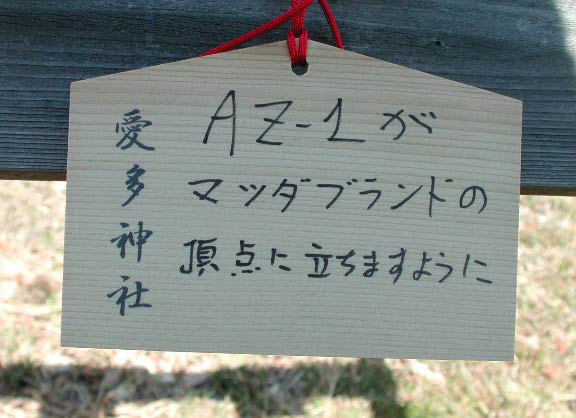 愛多神社
AZ-1が
マツダブランドの
頂点に立ちますように